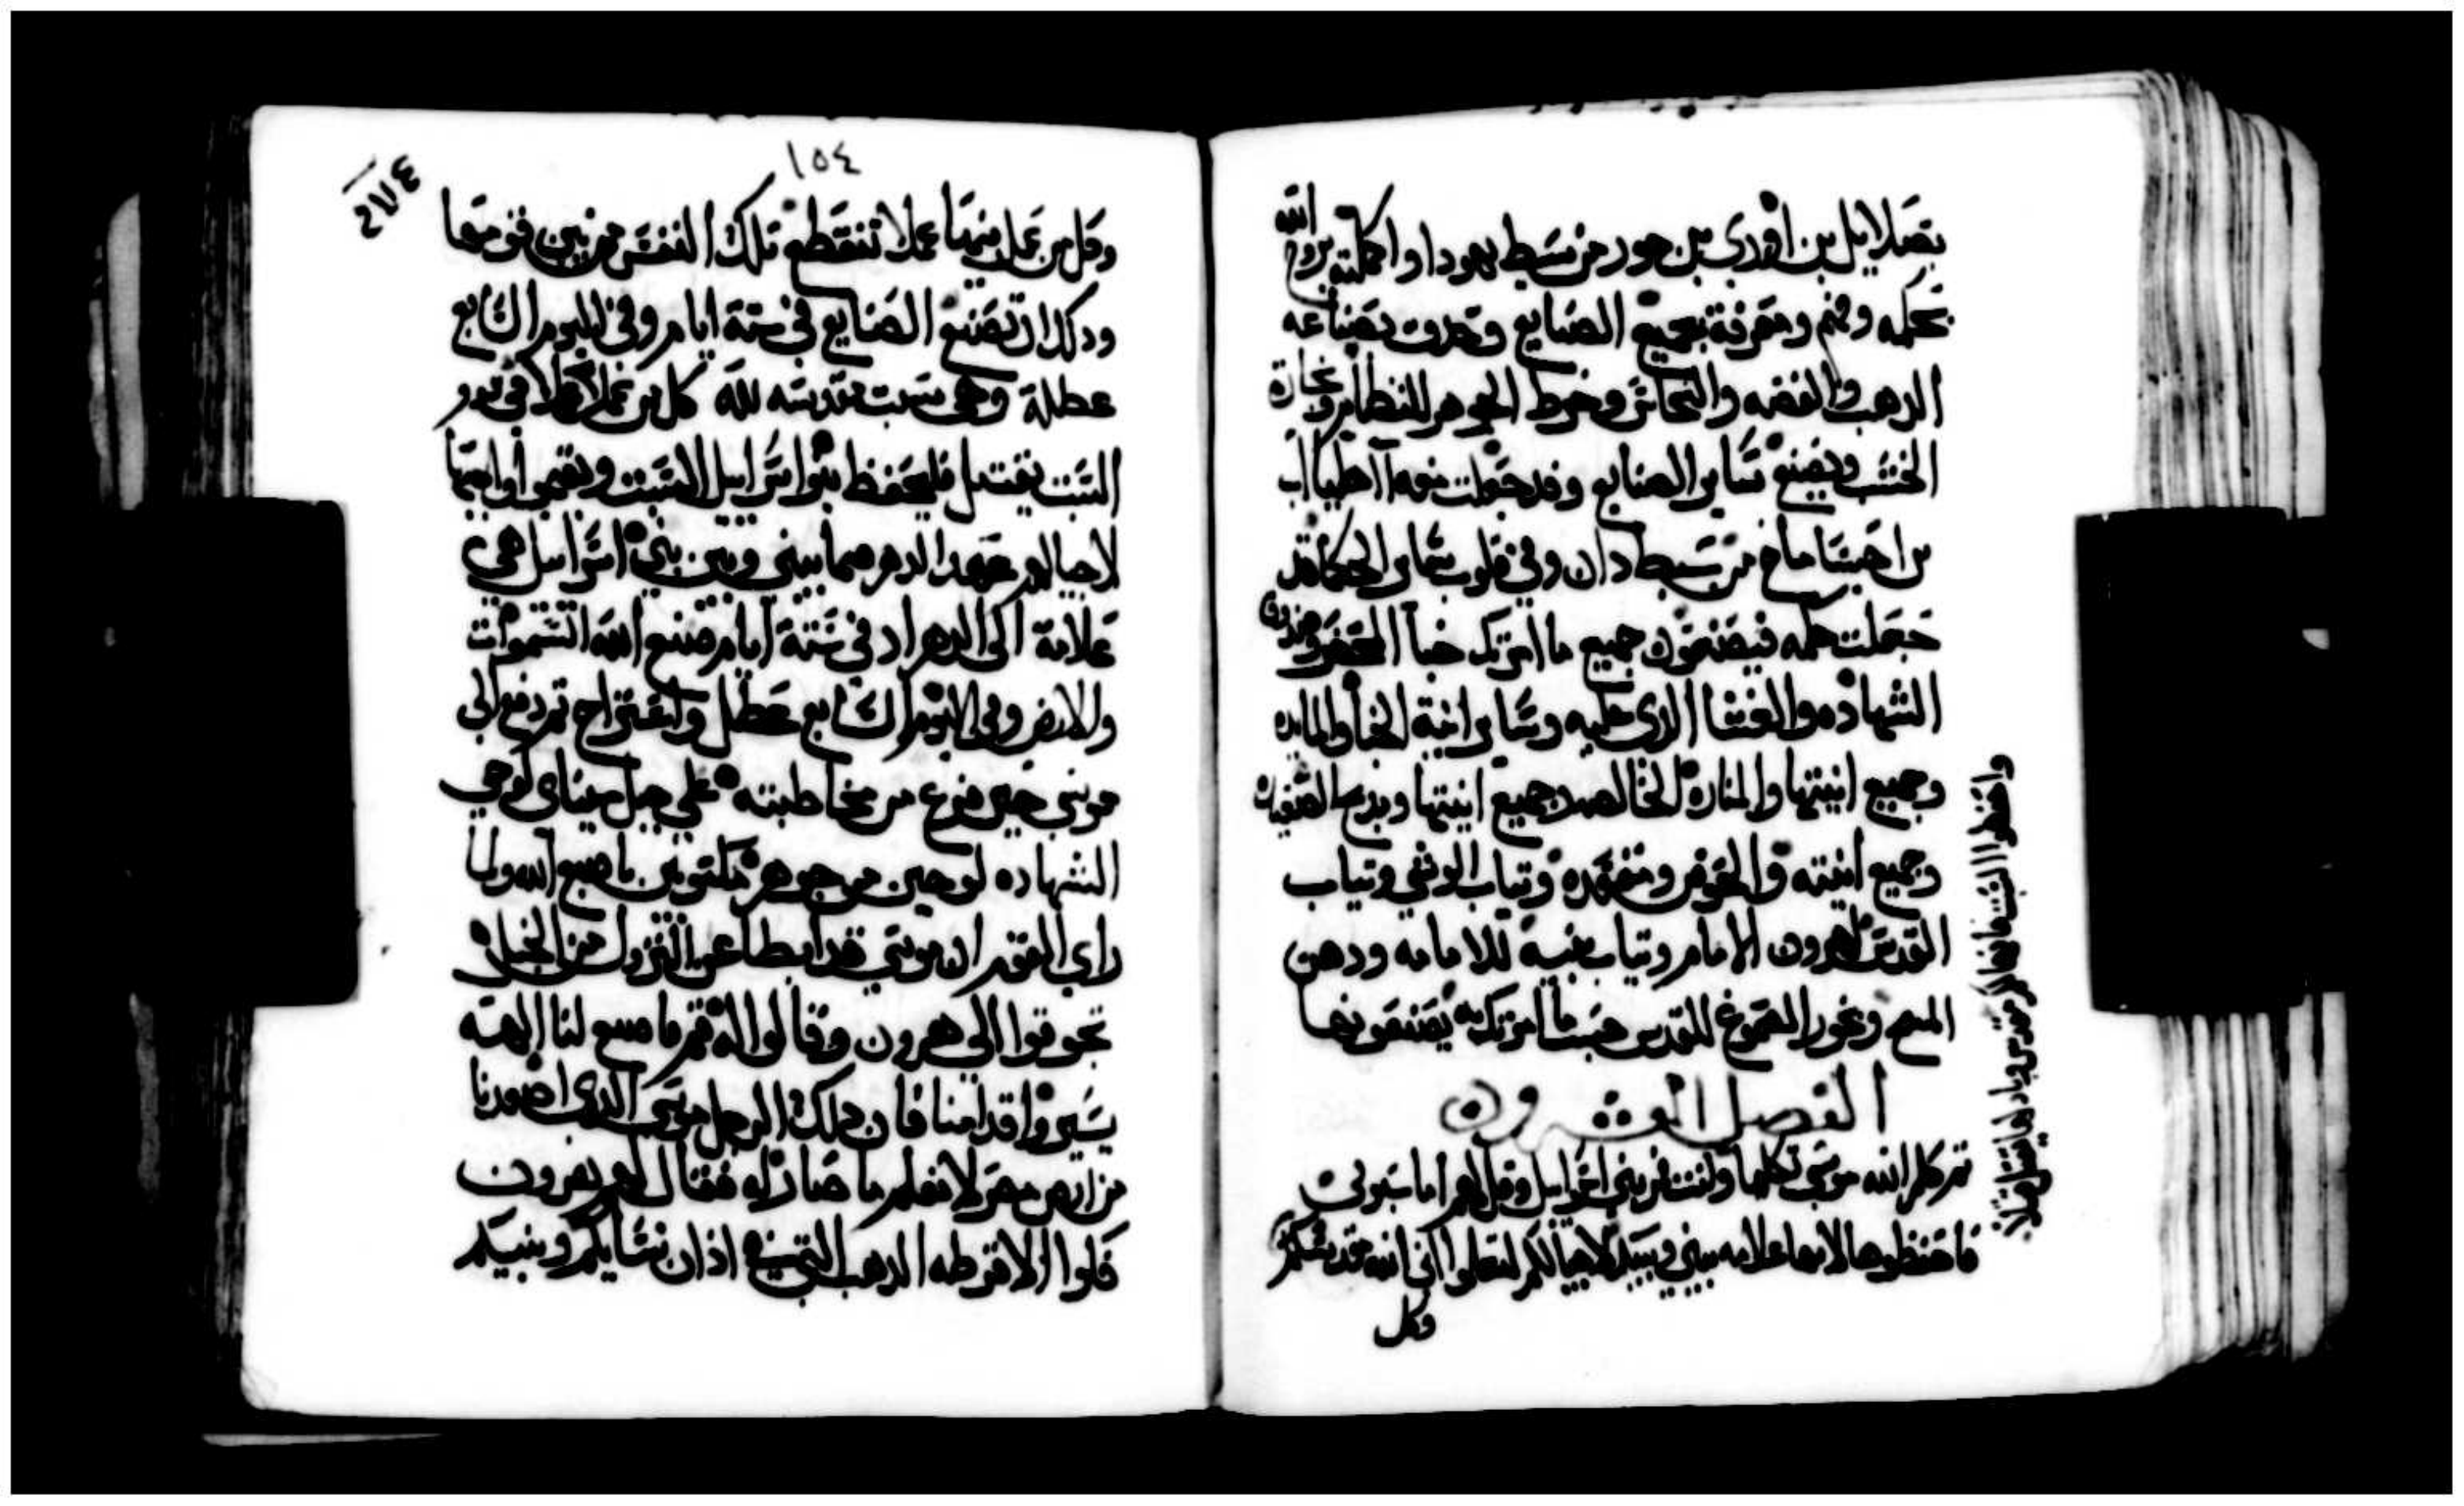 بصلايل بن اوري بن حور من سبط يهودا واكملته بروح الله
بحكمه وفهم ومعرفة بجميع الصنايع وحدق بصناعه
الدهب والفضه والنحاس وخرط الجوهر للنظام ونجارة
الخشب ويصنع ساير الصنايع وقد جعلت معه اهلياب
بن احيساماخ من سبط دان وفي قلوب ساير الحكما قد
جعلت حكمه فيصنعون جميع ما امرتك خبا المحضر وصندوق
الشهاده والغشا الدي عليه وساير انية الخبا والمايده
وجميع انيتها والمناره الخالصه وجميع انيتها ومدبح الصعيده
وجميع انيته والحوض ومقعده وتياب الوشي وتياب
القدس لهرون الامام وتياب بنيه للامامه ودهن
المسح وبخور الصموغ للقدس حسب ما امرتك به يصنعونها
الفصل العشرون
تم كلم الله موسى تكليما وانت فمر بني اسرايل وقل لهم اما سبوتي
فاحفظوها لانها علامه بيني وبينكم لاجيالكم لتعلموا اني الله مقدسكم
واحفظوا السبت فانها لكم مقدس وبادلها يقتل قتلا
وكل
١٥٤
وكل من عمل فيها عملا تنقطع تلك النفس من بين قومها
ودلك ان تصنع الصنايع في ستة ايام وفي اليوم السابع
عطلة وهي سبت مقدسه لله كل من عمل عملا في يوم
السبت يقتل فليحفظ بنوا اسراييل السبت ويقيموا واجبها
لاجيالهم عهد الدهر فيما بيني وبين بني اسراييل هي
علامة الى الدهر اد في ستة ايام صنع الله السموات
والارض وفي اليوم السابع عطل واستراح تم دفع الى
موسى حين فرغ من مخاطبته على جبل سيناي لوحي
الشهاده لوحين من جوهر مكتوبين باصبع الله ولما
راي القوم ان موسى قد ابطا عن النزول من الجبل
تجوقوا الى هرون وقالوا له قم فاصنع لنا الهه
يسيروا قدامنا فان دلك الرجل موسى الدي اصعدنا
من ارض مصر لا نعلم ما صار له فقال لهم هرون
فكوا الاقرطه الدهب التي في ادان نسايكم وبنيكم